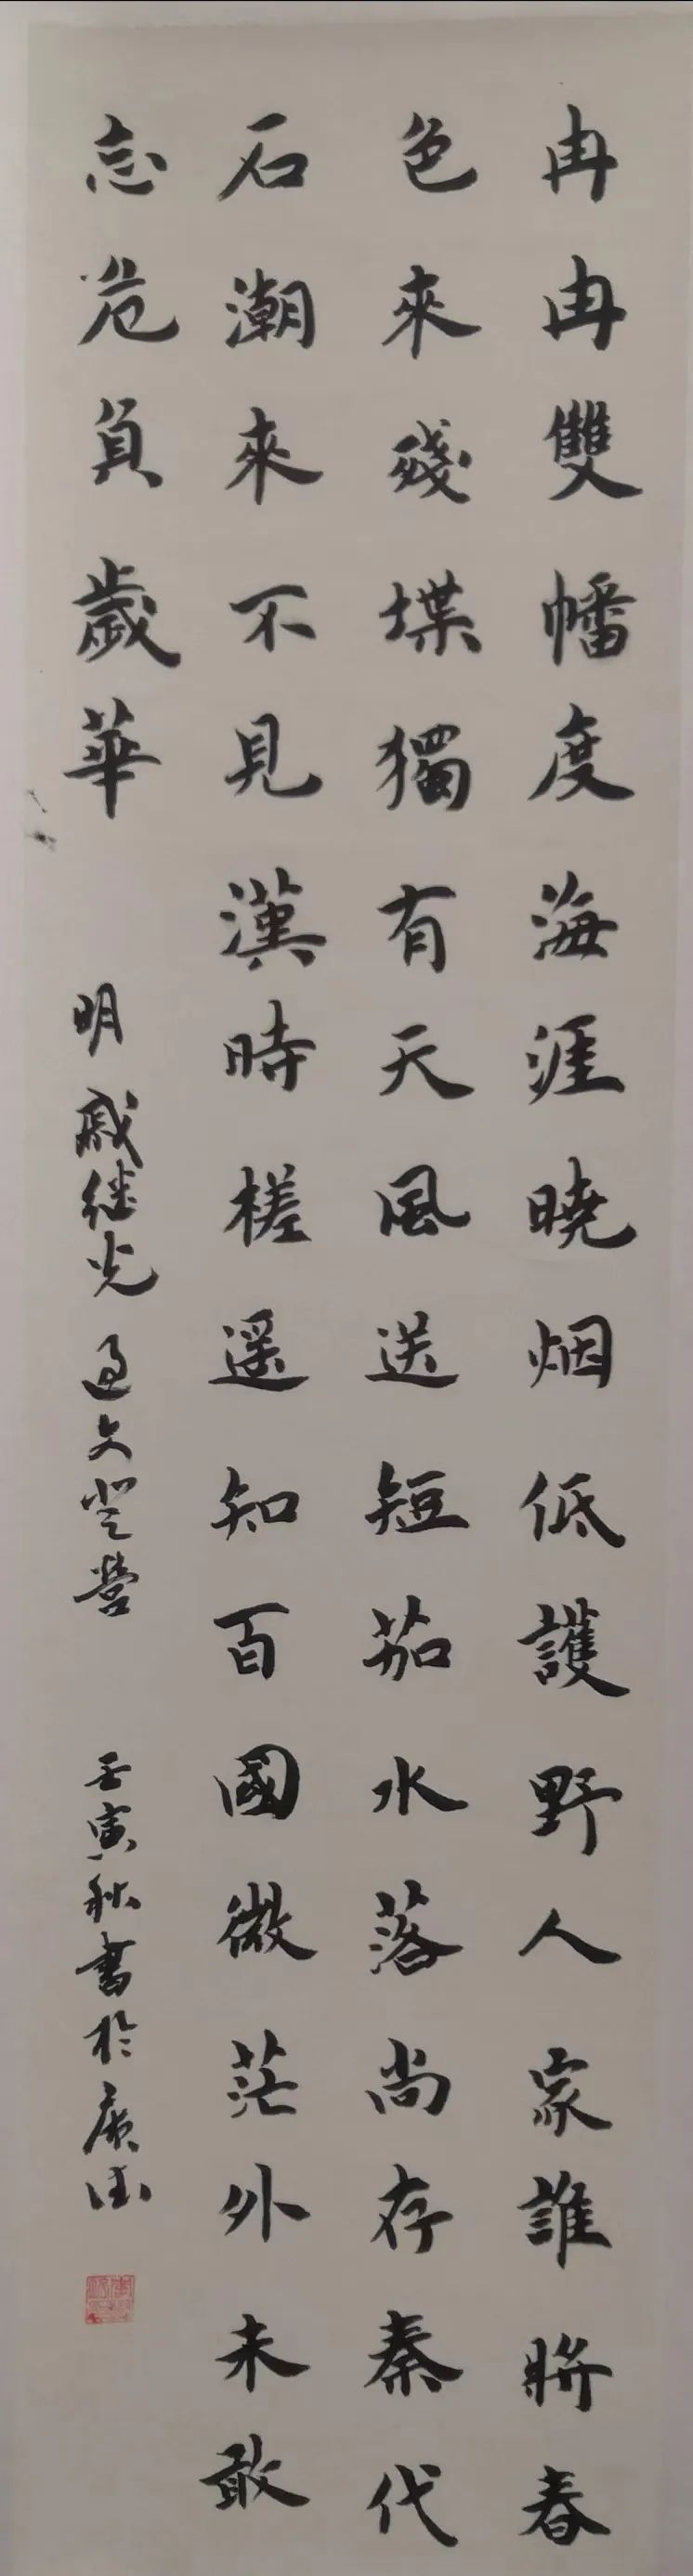 冉冉雙幡度海涯曉烟低護野人家誰將春
色來殘堞獨有天風送短茄水落尚存秦代
石潮來不見漢時槎遥知百國微茫外未敢
忘危負歲華
明 戚继光 过文登營
壬寅秋書於